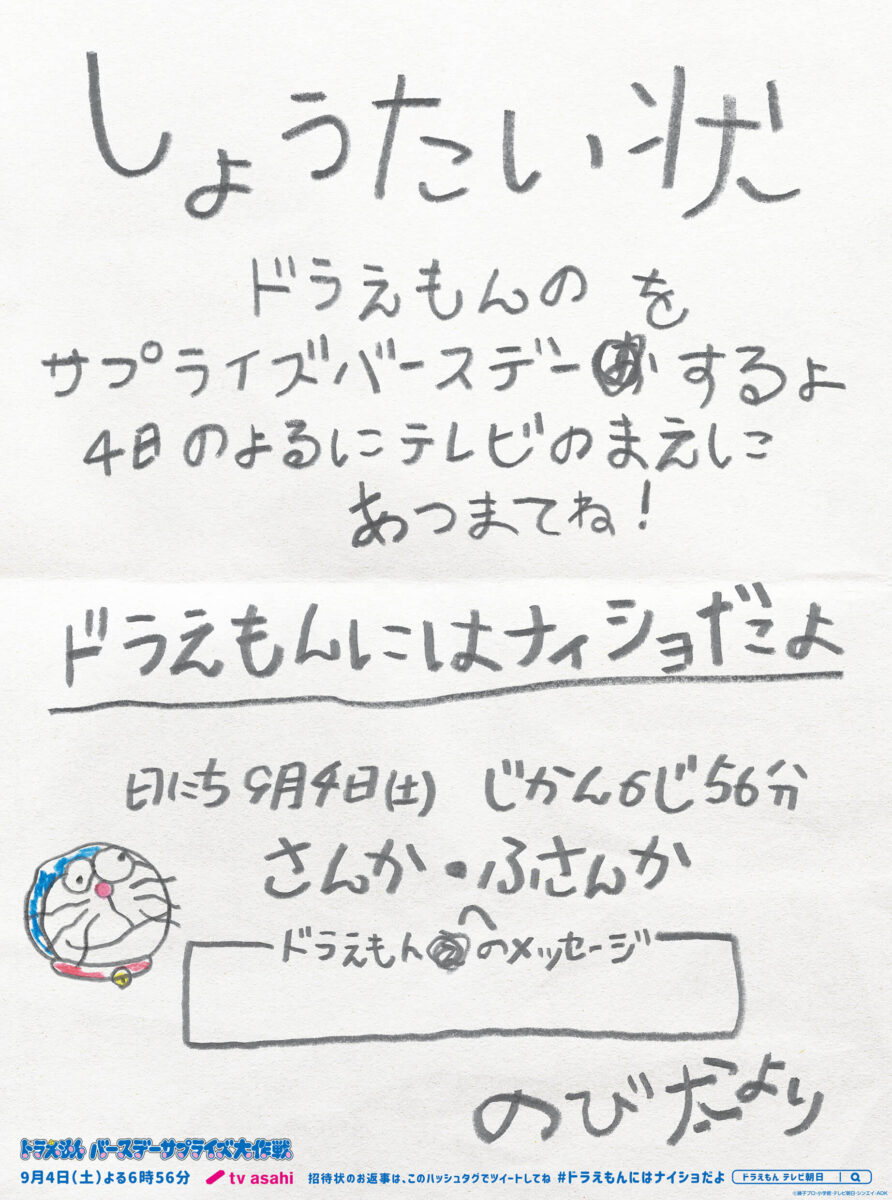 しょうたい状
ドラえもんの を
サプライズバースデー するよ
4日のよるにテレビのまえに
あつまてね!
ドラえもんにはナイショだよ
日にち9月4日(土) じかん6じ56分
さんか・ふさんか
ドラえもんへのメッセージ
のびだより
ドラえもん バースデーサプライズ大作戦
9月4日(土)よる6時56分 tv asahi 招待状のお返事は、このハッシュタグでツイートしてね #ドラえもんにはナイショだよ ドラえもん テレビ朝日
©藤子プロ・小学館・テレビ朝日・シンエイ・ADK